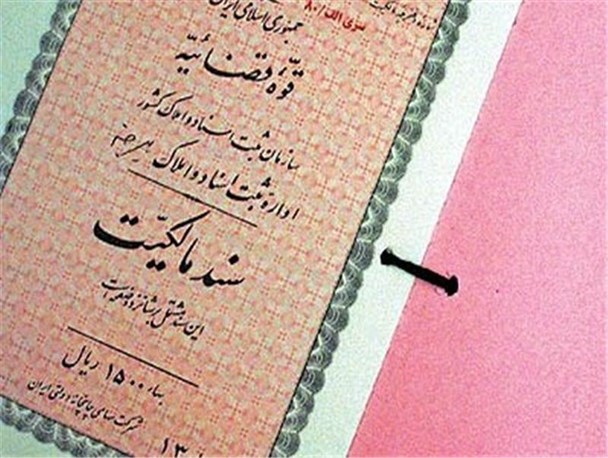 سری الف/۸۰
جمهوری اسلامی ایران
قوّه قضائیّه
سازمان ثبت اسناد و املاک کشور
اداره ثبت اسناد و املاک
سند مالکیّت
این سند مشتمل بر شانزده صفحه است
بهاء ۱۵۰۰ ریال
شرکت سهامی چاپخانه دولتی ایران
۱۳